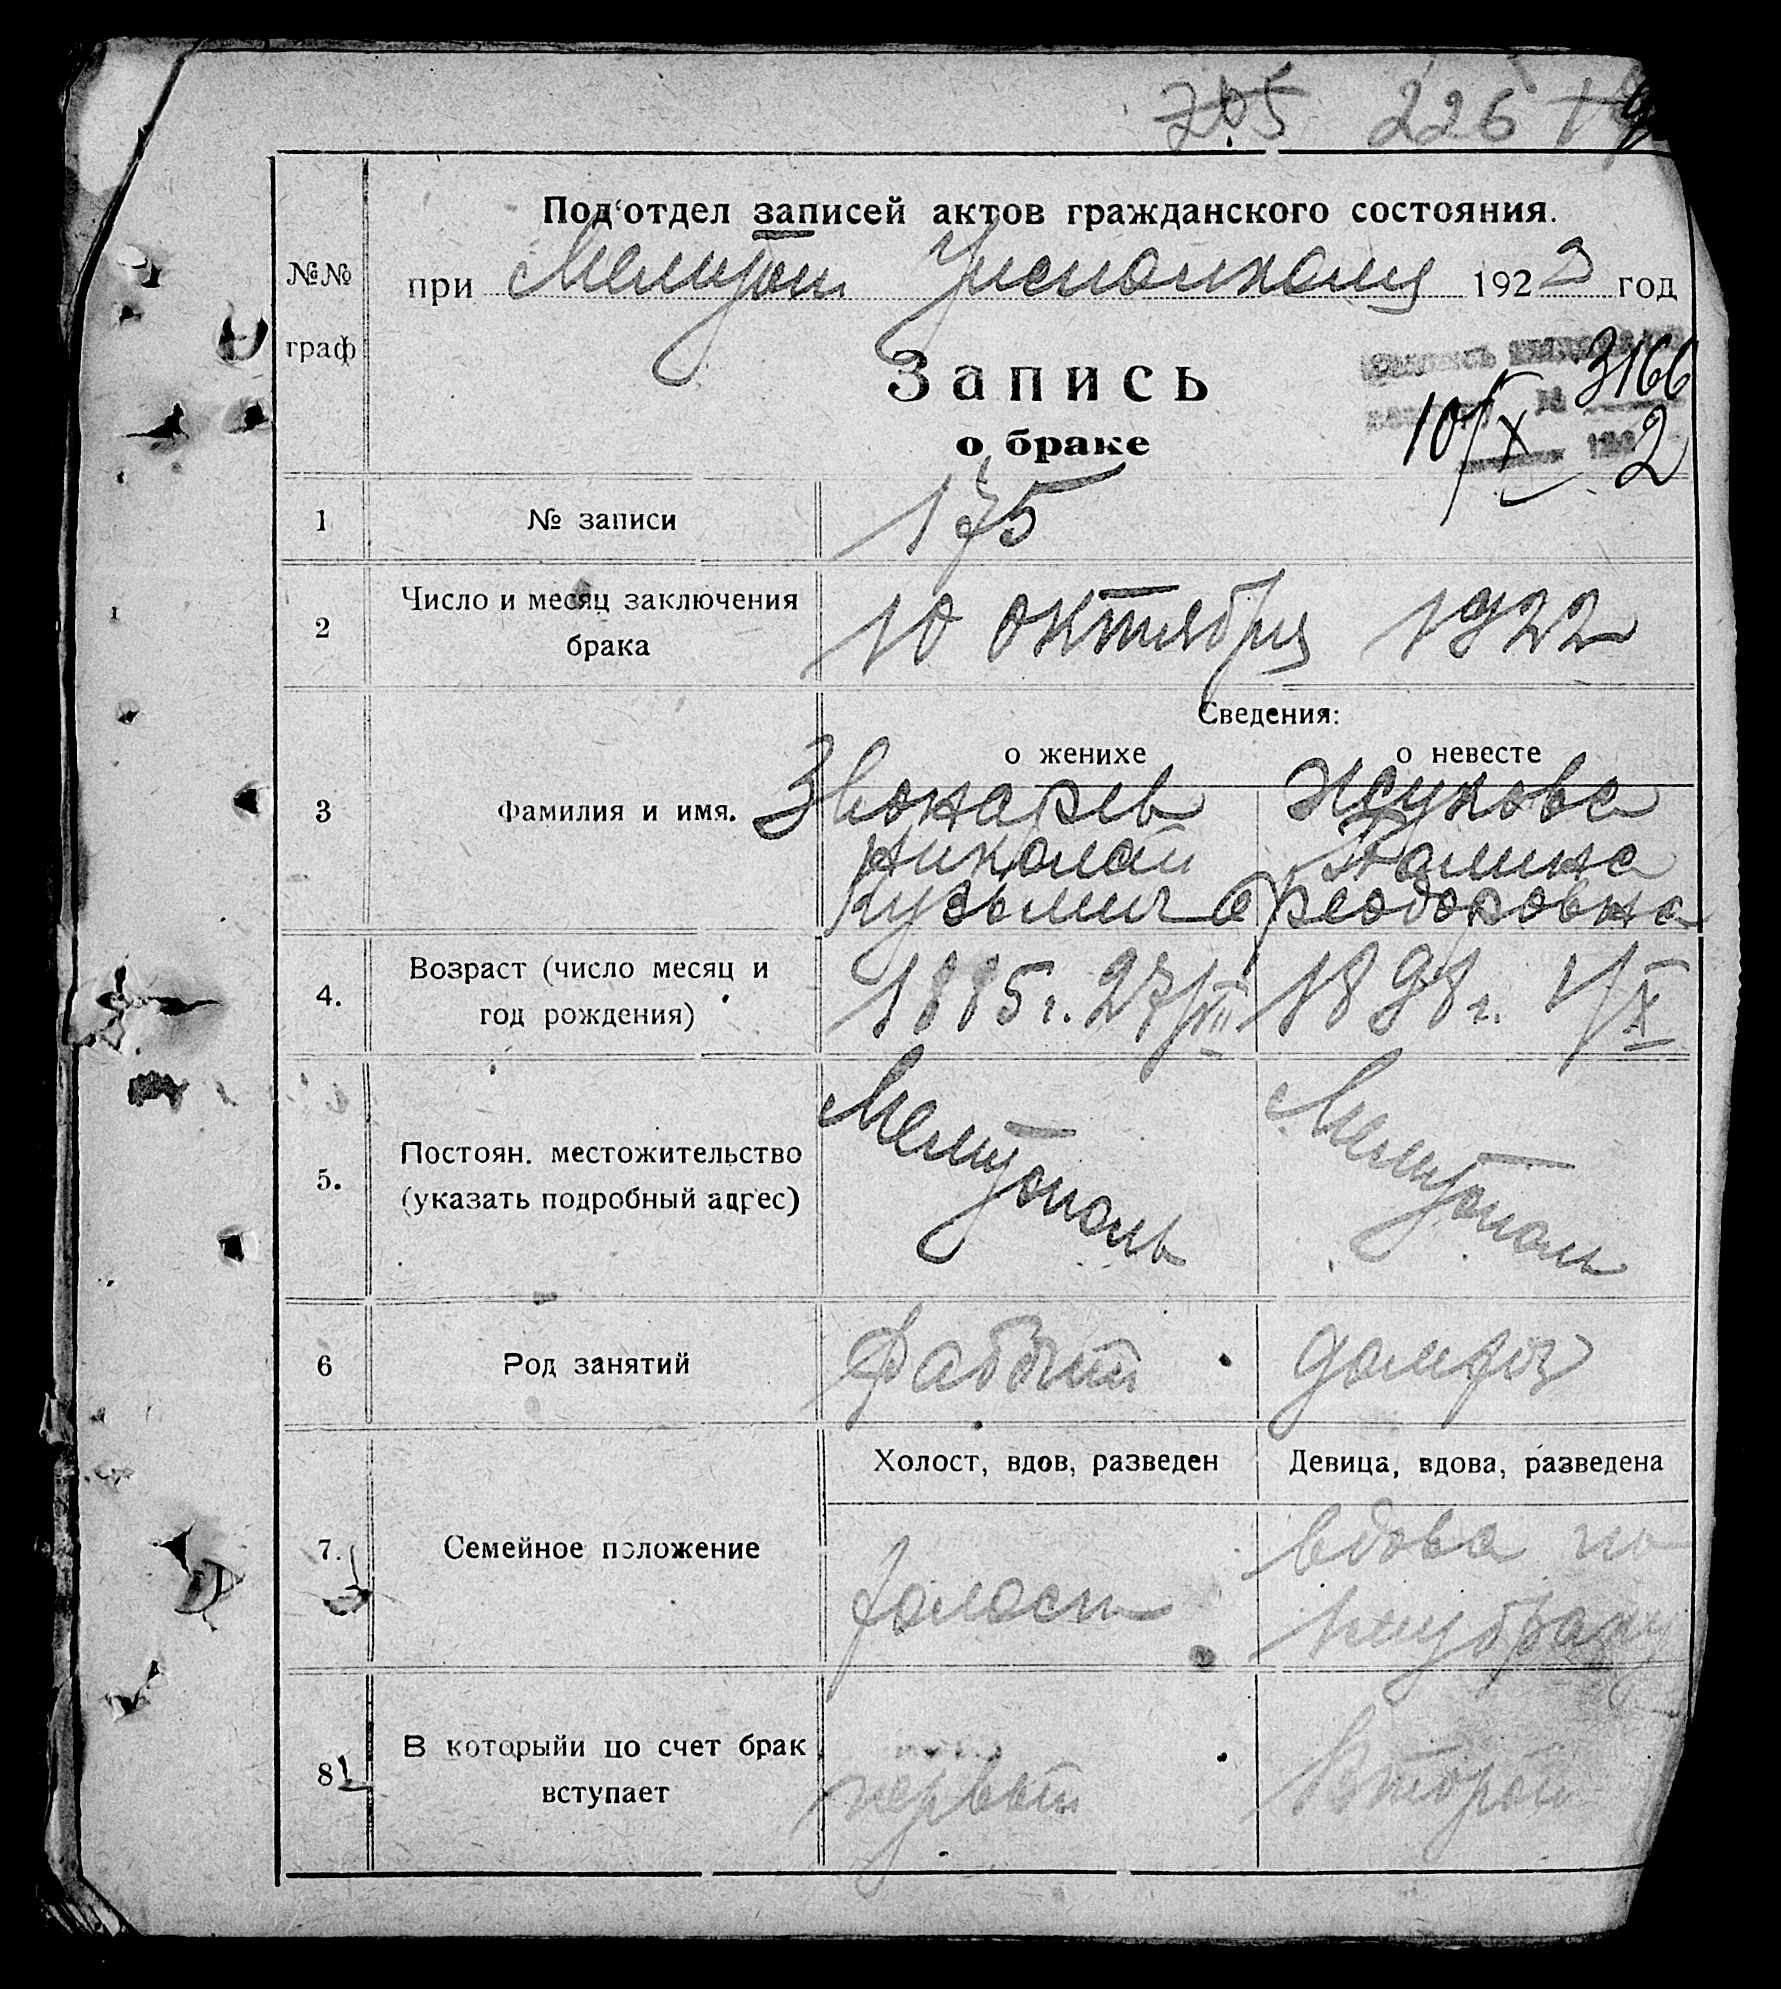 705 226
Под'отдел записей актов гражданского состояния.
№№
граф
при Мелитоп Уисполкоме 1922 год
Запись
о браке
3166
10/X 2
1 № записи 175
2 Число и месяц заключения брака 10 октября 1922
Сведения:
о женихе о невесте
3 Фамилия и имя. Звонарев Жукова
Николай Галина
Кузьмич Феодоровна
4. Возраст (число месяц и год рождения) 1885 г. 27/VII 1898 г. 1/X
5. Постоян. местожительство (указать подробный адрес) Мелитополь Мелитополь
6 Род занятий домхоз
Холост, вдов, разведен Девица, вдова, разведена
7. Семейное положение холост вдова по
1му браку
8 В которыйи по счет брак вступает первый Второй